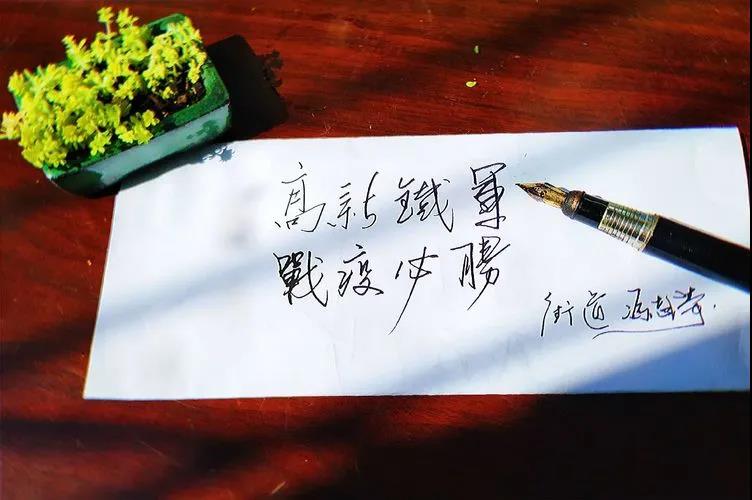 高新鐵軍
戰疫必勝
街道